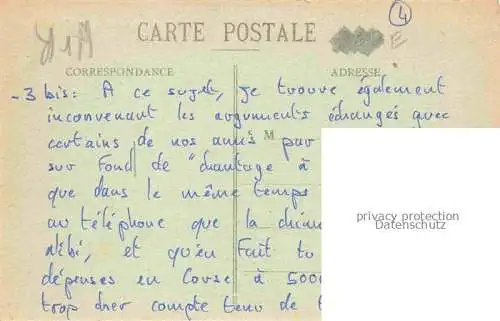 4
CARTE POSTALE
E
CORRESPONDANCE
ADRESSE
- 3 bis : A ce sujet, je trouve également
inconvenant les arguments échangés avec
certains de nos amis par
M
sur fond de "chantage à
que dans le même temps
au téléphone que la
et qu'en fait tu
dépenses en Corse à 5000
trop cher compte tenu de
privacy protection
Datenschutz